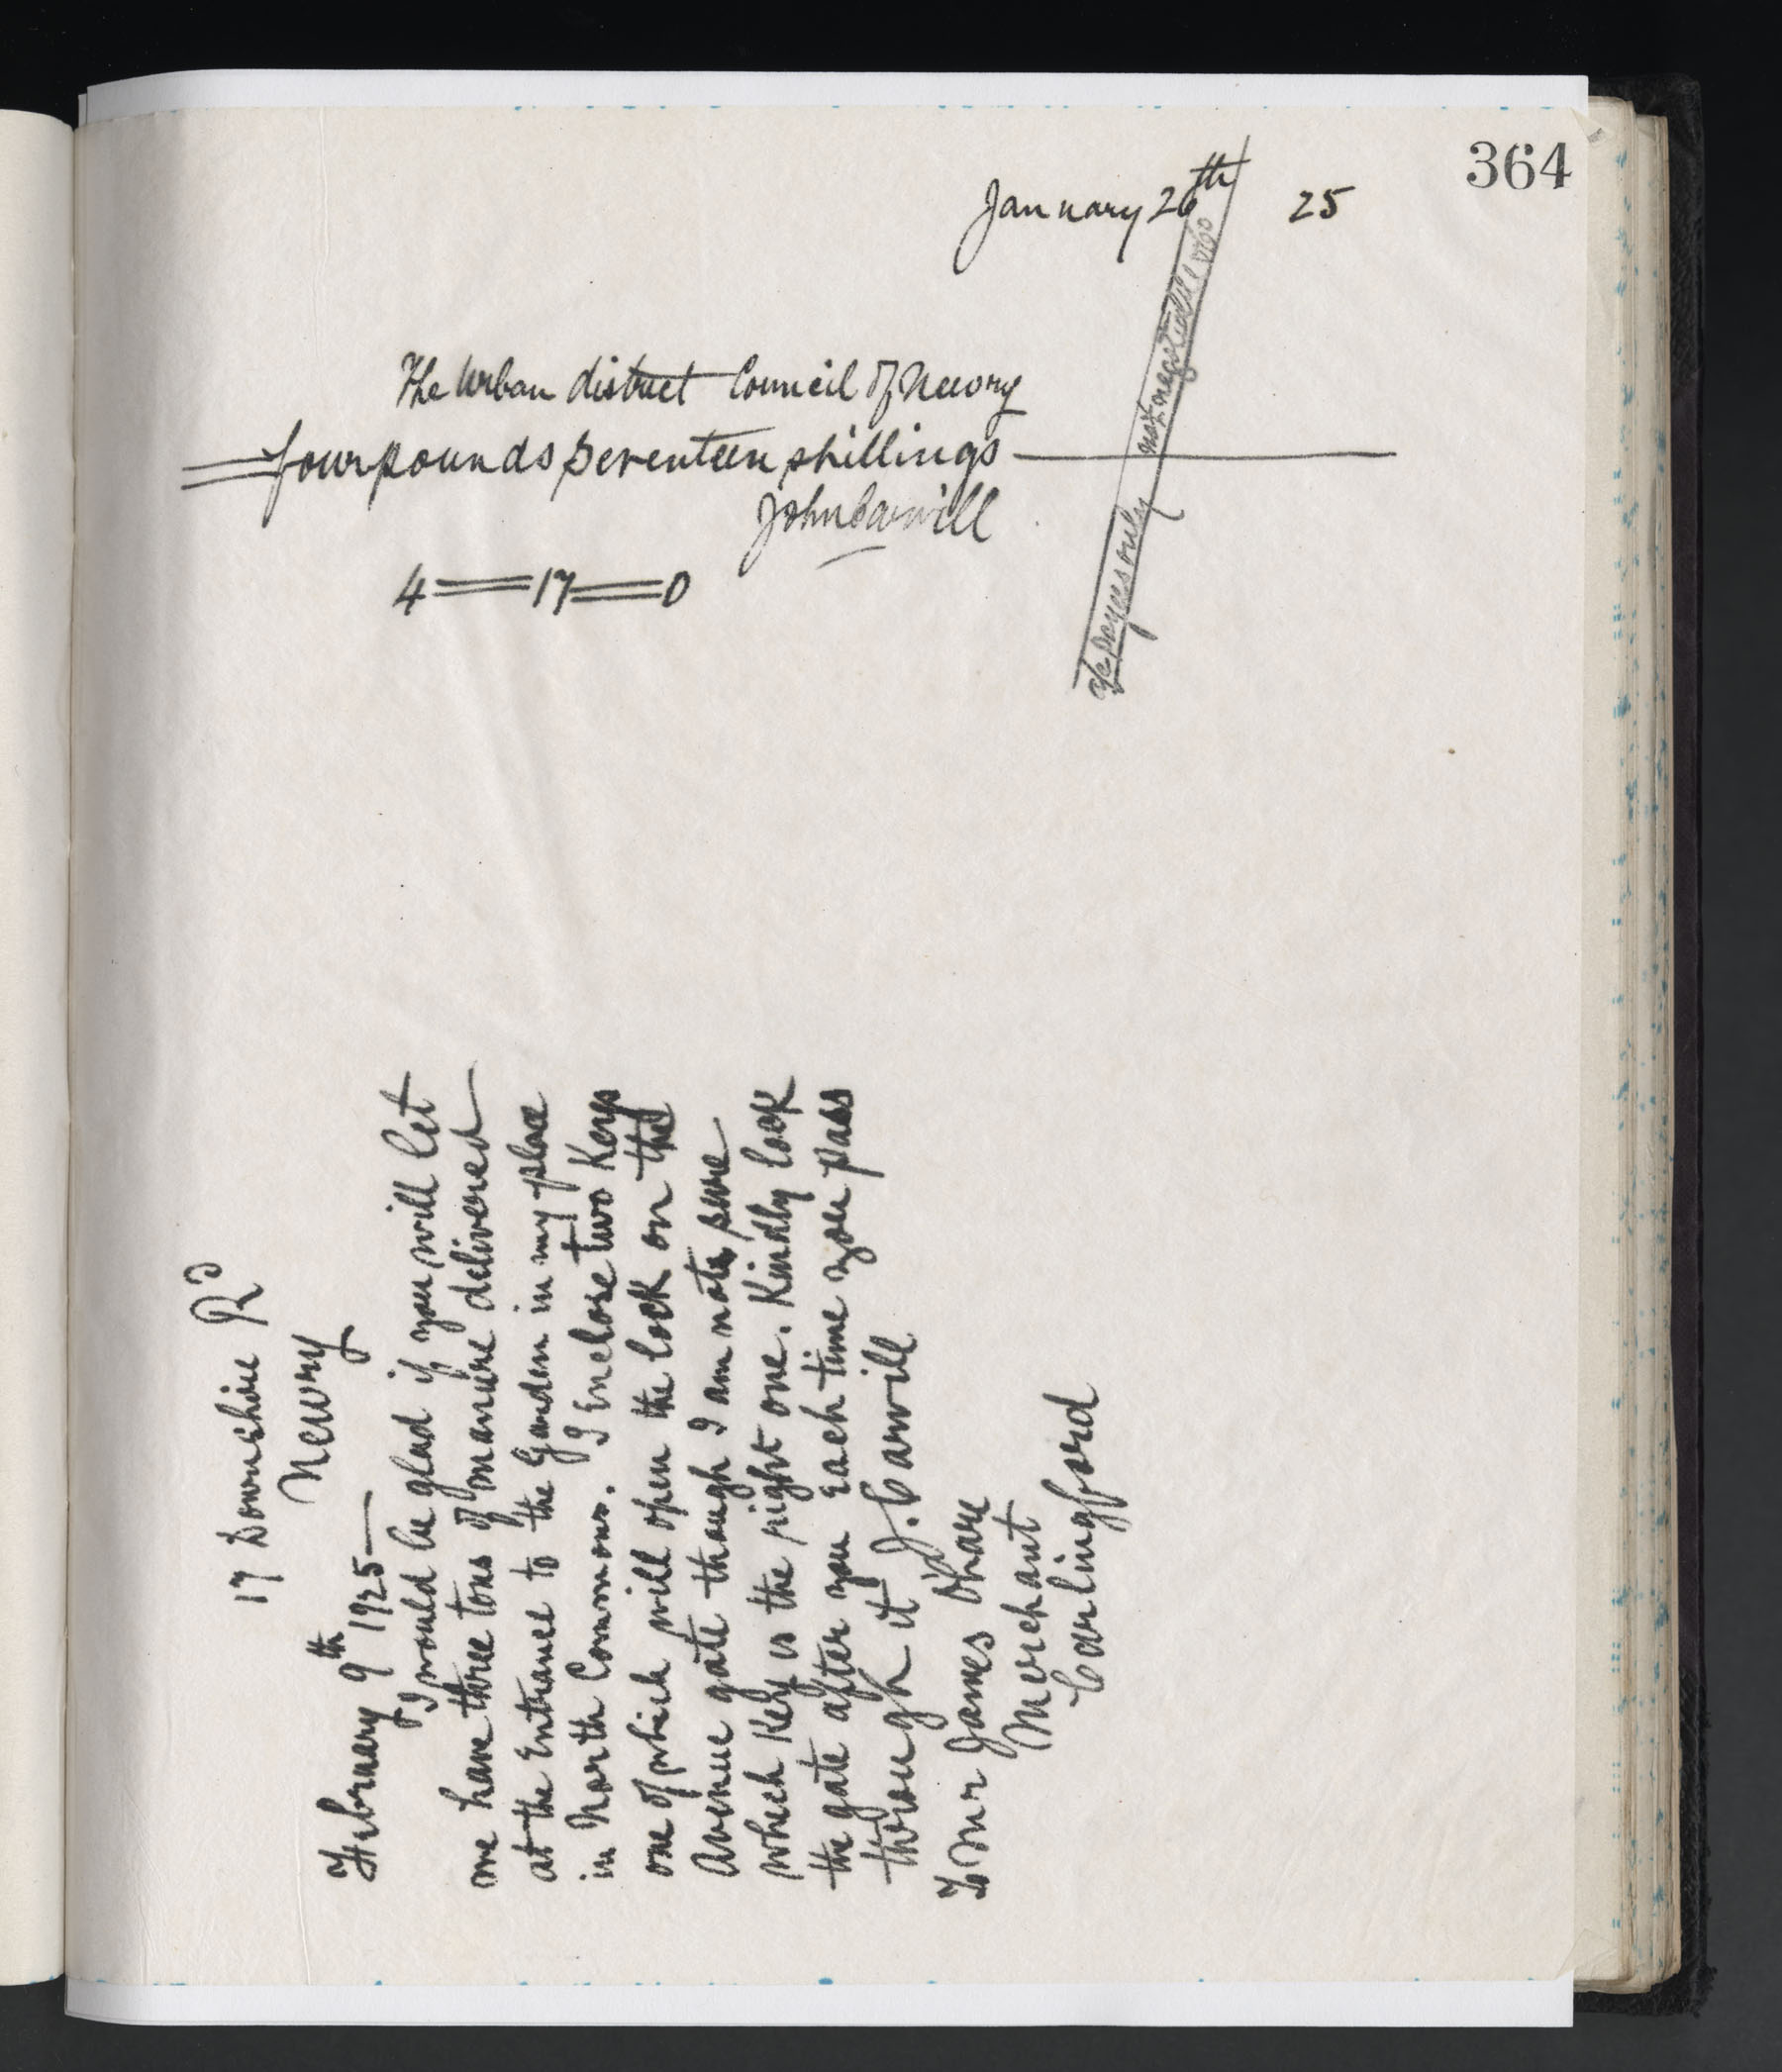 364
January 26th 25
The Urban district Council of Newry
four pounds seventeen shillings
John Carvill
4 == 17 == 0
a/c payees only not negotiable
17 Downshire Rd
Newry
February 9th 1925
I would be glad if you will let
me have three tons of manure delivered
at the Entrance to the Garden in my place
in North Commons. I Enclose two Keys
one of which will open the lock on the
Avenue gate though I am not sure
which Key is the right one. Kindly lock
the gate after you Each time you pass
through it J. Carvill
To Mr James O'hare
Merchant
Carlingford